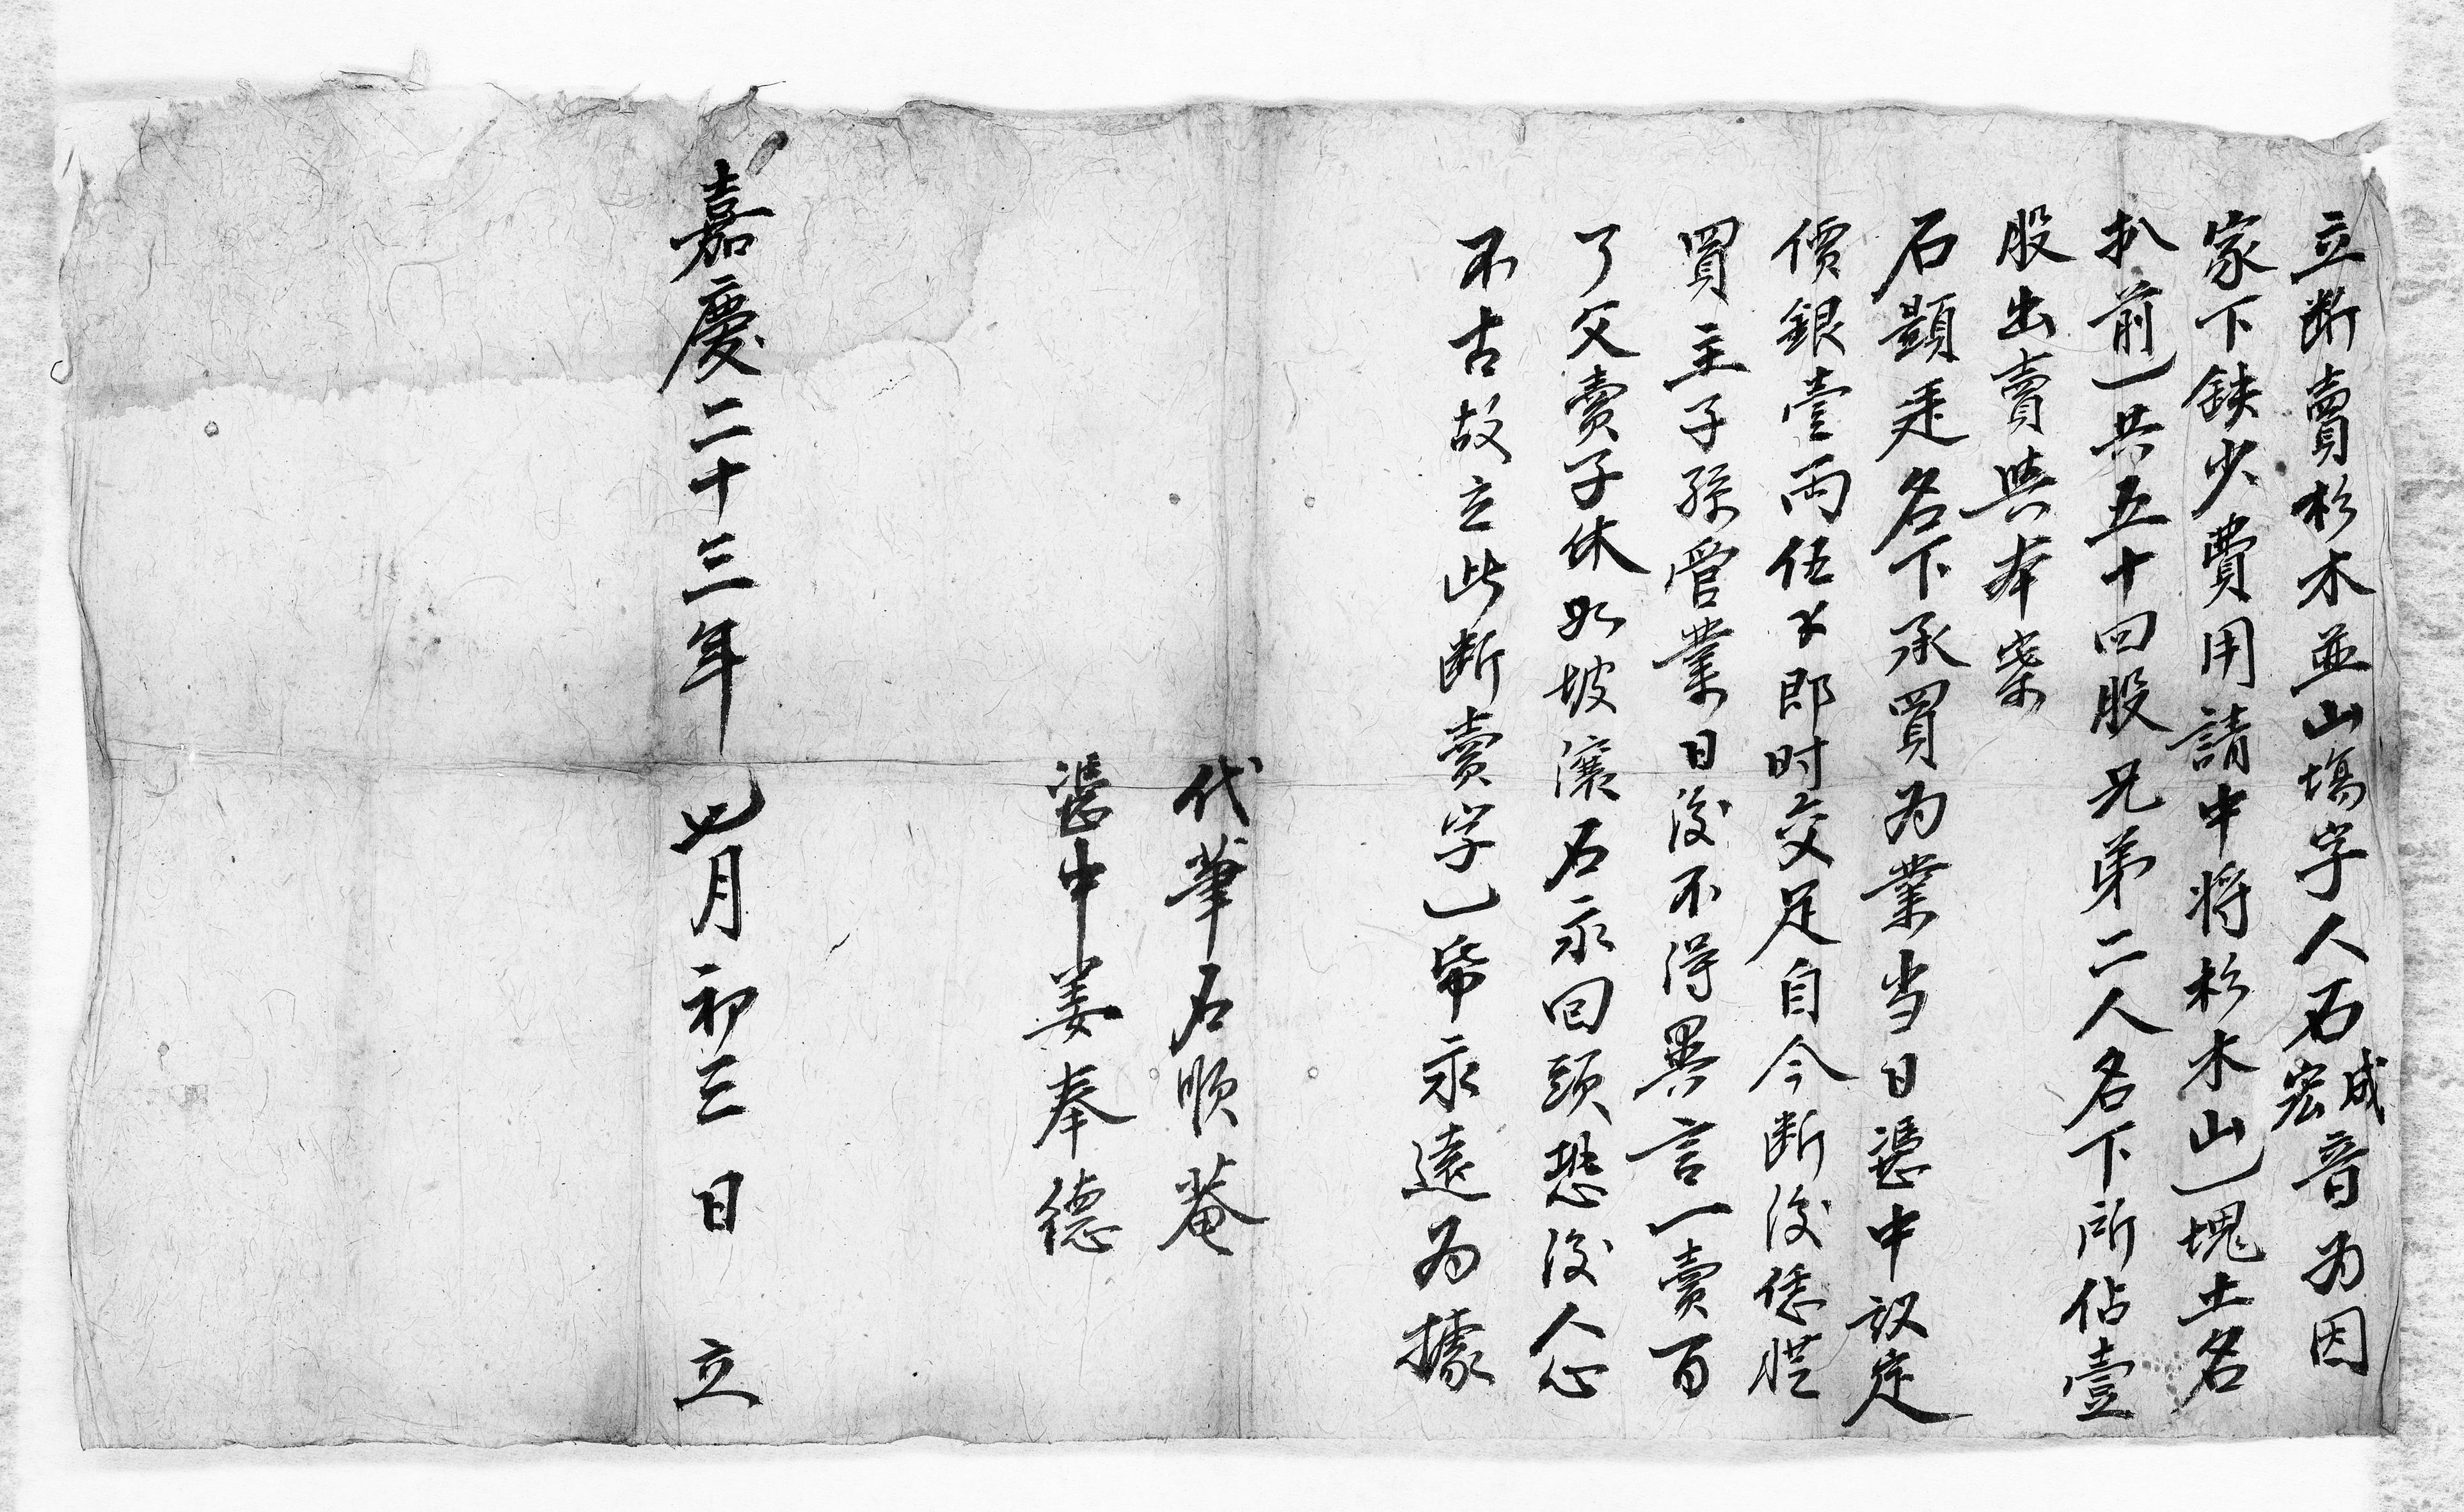 立断賣杉木並山塲字人石成宏音为因
家下缺少費用請中将杉木山一塊土名
扒前一共五十四股兄弟二人名下所佔壹
股出賣與本寨
石顯廷名下承買为業当日憑中議定
價銀壹両伍卜即时交足自今断後恁憑
買主子孫管業日後不得異言一賣百
了父賣子休如坡滚石永囬頭恐後人心
不古故立此断賣字一帋永遠为據
代筆石順菴
憑中姜奉德
嘉慶二十三年七月初三日 立